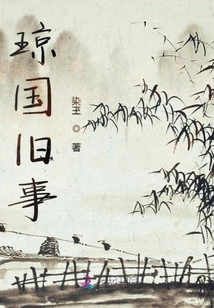 琼国旧事
染王 ◎ 著